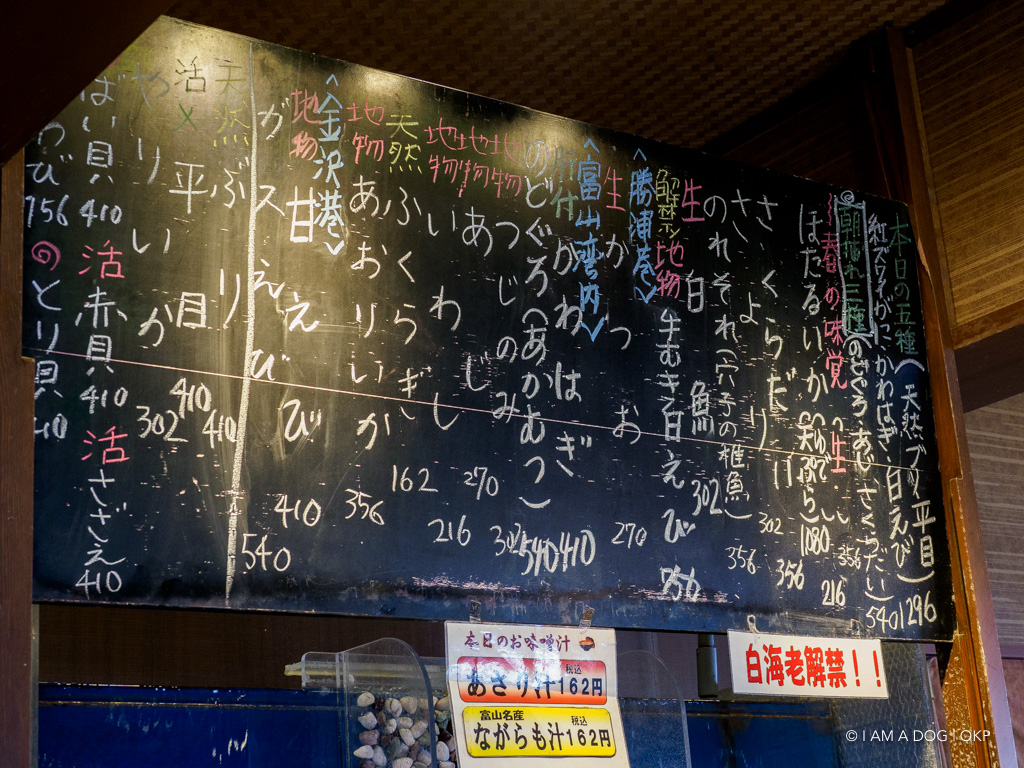 本日の五種(天然ブリ、平目
紅ズワイがに、かわはぎ、白えび) 1296
朝獲れ三種(のどぐろ、あじ、さくらだい) 540
春の味覚 生
ほたるいか
(天ぷら) 1080
356
216
さくらだい 356
さより 302
のれそれ(穴子の稚魚) 356
生 白魚 302
解禁 地物 生むき白えび 756
〈勝浦港〉
生 かつお 270
〈富山湾内〉
肝付 かわはぎ 410
のどぐろ(あかむつ) 540
地物 つじのみ 302
地物 あじ 270
地物 いわし 216
天然 ふくらぎ 162
地物 あおりいか 356
〈金沢港〉
地物 甘えび 410
ガスえび 540
天然 ぶり 410
活〆 平目 410
やりいか 302
ばい貝 410
活 赤貝 410
活 さざえ 410
わび 756
とり貝
本日のお味噌汁
あさり汁 税込 162円
富山名産
ながらも汁 税込 162円
白海老解禁!!
© I AM A DOG | QKP